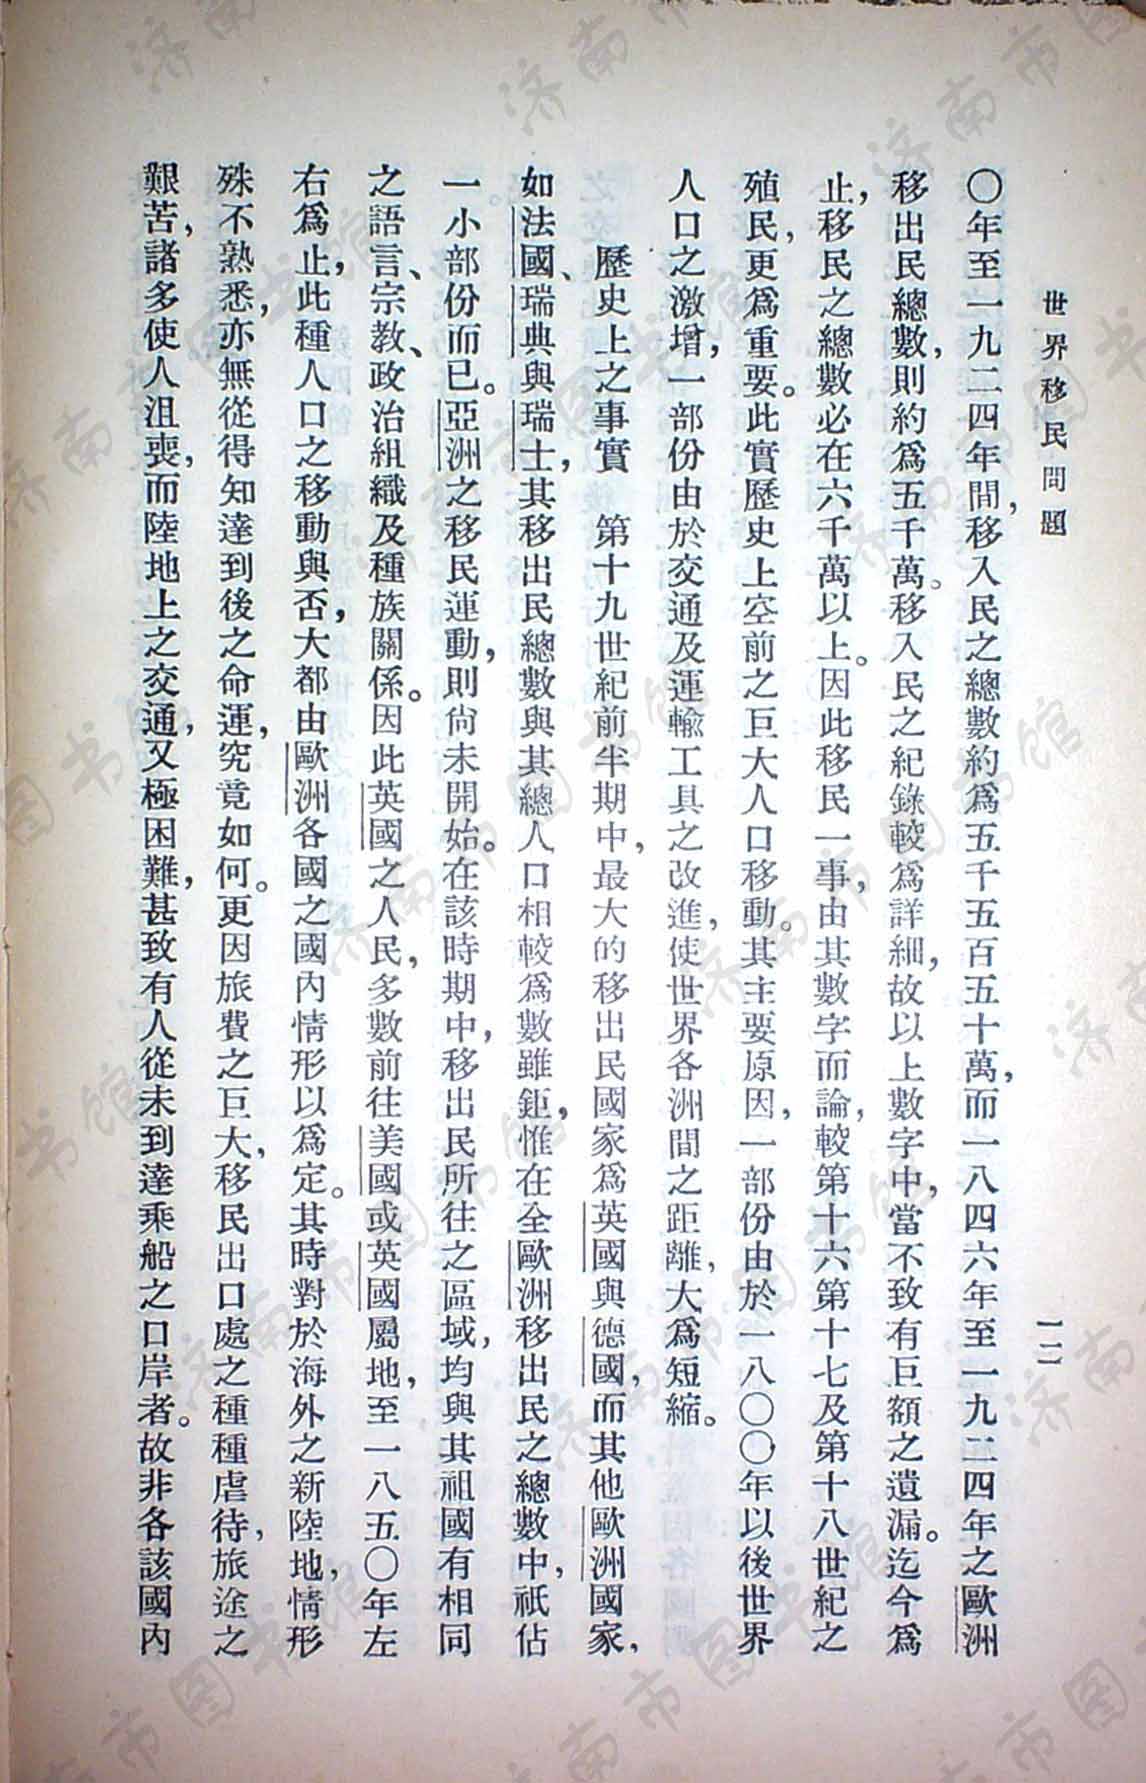 世界移民問題
一二
〇年至一九二四年間，移入民之總數約爲五千五百五十萬，而一八四六年至一九二四年之歐洲
移出民總數，則約爲五千萬。移入民之紀錄較爲詳細，故以上數字中，當不致有巨額之遺漏。迄今爲
止，移民之總數必在六千萬以上。因此移民一事，由其數字而論，較第十六第十七及第十八世紀之
殖民，更爲重要。此實歷史上空前之巨大人口移動。其主要原因，一部份由於一八〇〇年以後世界
人口之激增，一部份由於交通及運輸工具之改進，使世界各洲間之距離，大爲短縮。
歷史上之事實　第十九世紀前半期中，最大的移出民國家爲英國與德國，而其他歐洲國家，
如法國、瑞典與瑞士，其移出民總數與其總人口相較爲數雖鉅，惟在全歐洲移出民之總數中，祇佔
一小部份而已。亞洲之移民運動，則尙未開始。在該時期中，移出民所往之區域，均與其祖國有相同
之語言、宗教、政治組織及種族關係。因此英國之人民，多數前往美國或英國屬地，至一八五〇年左
右爲止，此種人口之移動與否，大都由歐洲各國之國內情形以爲定。其時對於海外之新陸地，情形
殊不熟悉，亦無從得知達到後之命運，究竟如何。更因旅費之巨大，移民出口處之種種虐待，旅途之
艱苦，諸多使人沮喪，而陸地上之交通，又極困難，甚致有人從未到達乘船之口岸者。故非各該國內
济南市图书馆